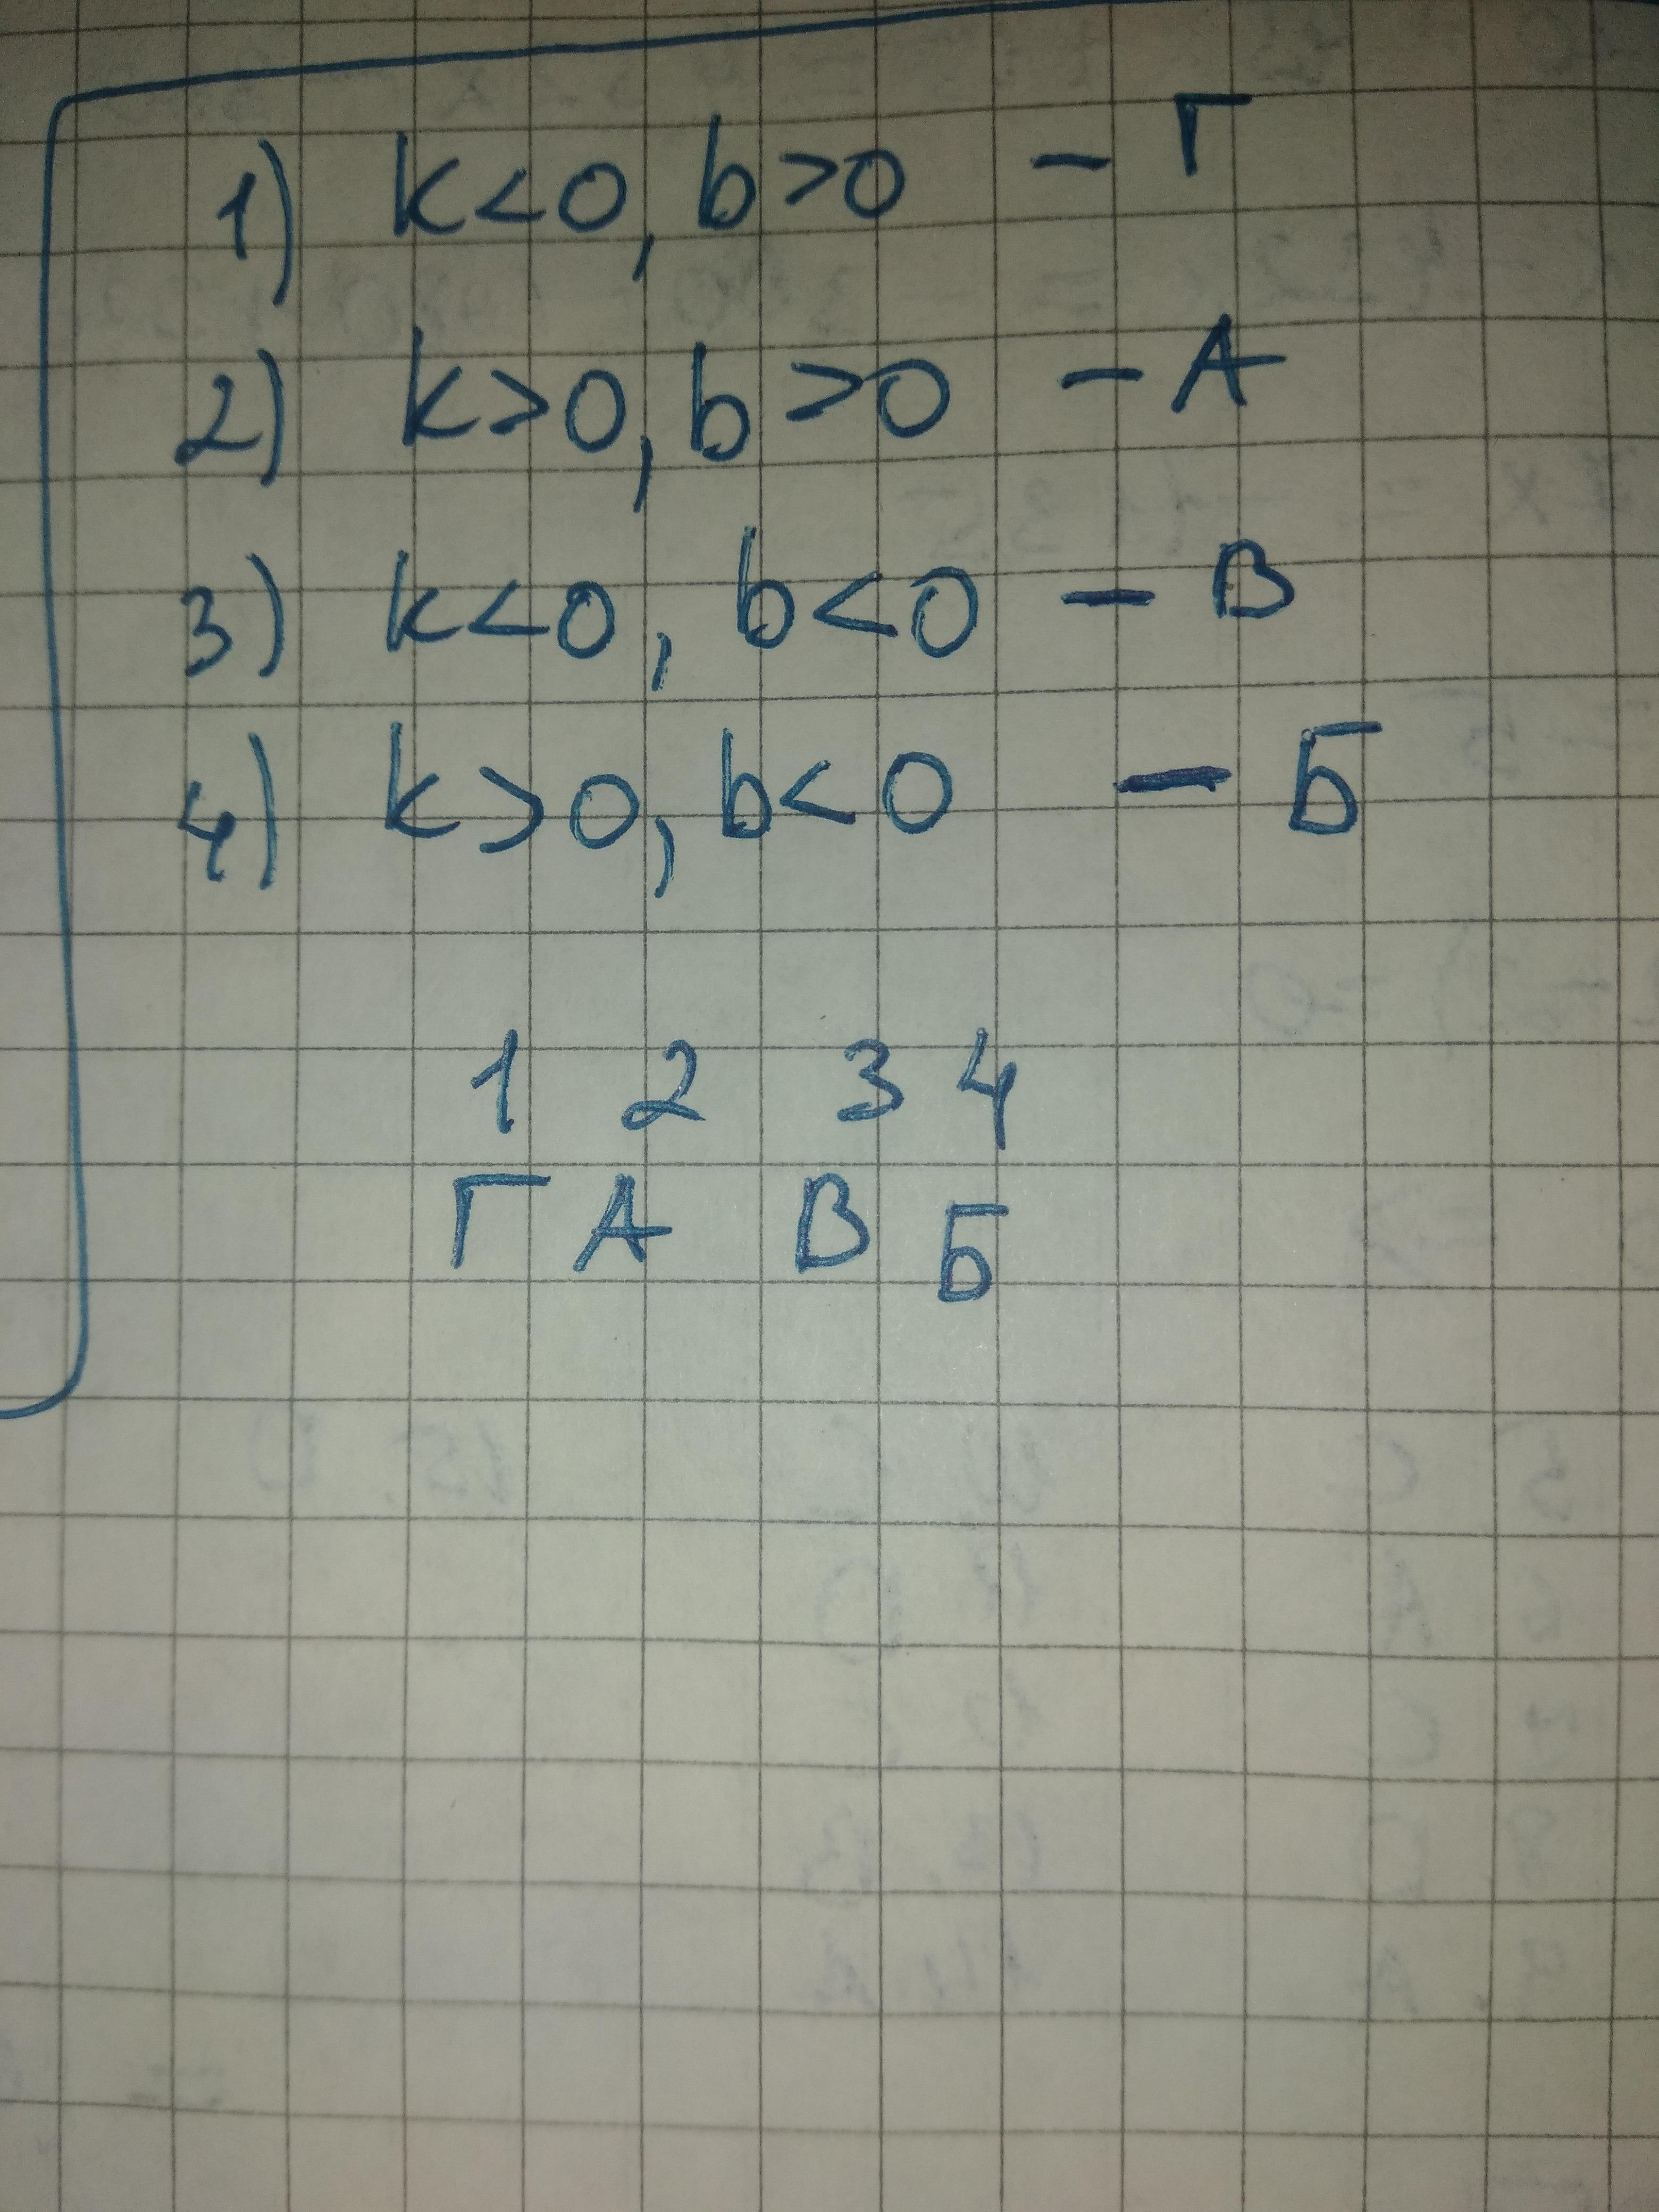 1) k<0, b>0 – Г
2) k>0, b>0 – А
3) k<0, b<0 – В
4) k>0, b<0 – Б
1 2 3 4
Г А В Б